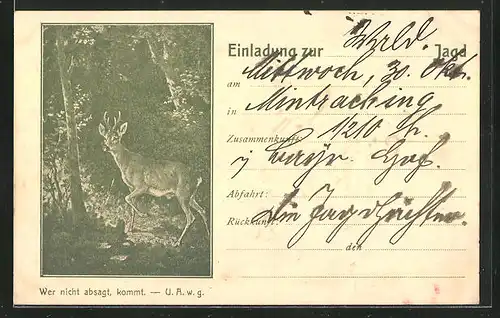 Einladung zur Wald. Jagd
am Mittwoch, 30. Okt.
in Mintraching
Zusammenkunft: 1210 Uh.
Bayr. Hof.
Abfahrt:
Rückkunft: Die Jagdpächter.
den
Wer nicht absagt, kommt. — U. A. w. g.